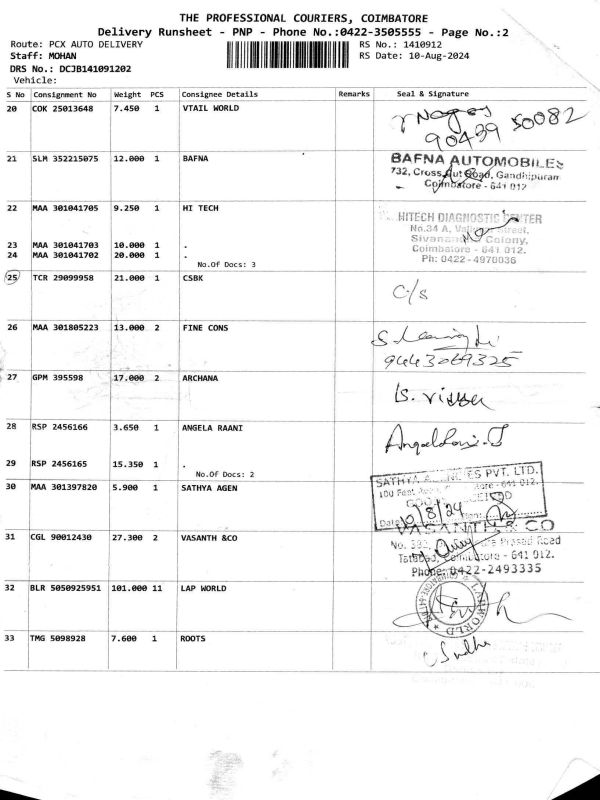 THE PROFESSIONAL COURIERS, COIMBATORE
Delivery Runsheet - PNP - Phone No.:0422-3505555 - Page No.:2
Route: PCX AUTO DELIVERY RS No.: 1410912
Staff: MOHAN RS Date: 10-Aug-2024
DRS No.: DCJB141091202
Vehicle:
S No Consignment No Weight PCS Consignee Details Remarks Seal & Signature
20 COK 25013648 7.450 1 VTAIL WORLD
90439 50082
21 SLM 352215075 12.000 1 BAFNA
BAFNA AUTOMOBILES
732, Cross Cut Road, Gandhipuram
Coimbatore - 641 012
22 MAA 301041705 9.250 1 HI TECH
HITECH DIAGNOSTIC CENTER
No.34 A, Street,
23 MAA 301041703 10.000 1 .
Colony,
24 MAA 301041702 20.000 1 .
Coimbatore - 641 012.
No.Of Docs: 3
Ph: 0422 - 4970036
25 TCR 29099958 21.000 1 CSBK
C/S
26 MAA 301805223 13.000 2 FINE CONS
9443069325
27 GPM 395598 17.000 2 ARCHANA
28 RSP 2456166 3.650 1 ANGELA RAANI
29 RSP 2456165 15.350 1 .
No.Of Docs: 2
30 MAA 301397820 5.900 1 SATHYA AGEN
SATHYA AGENCIES PVT. LTD.
10/8/24
VASANTH & CO
31 CGL 90012430 27.300 2 VASANTH &CO
Road
Coimbatore - 641 012.
Phone: 0422-2493335
32 BLR 5050925951 101.000 11 LAP WORLD
LAP WORLD
33 TMG 5098928 7.600 1 ROOTS
Sudha